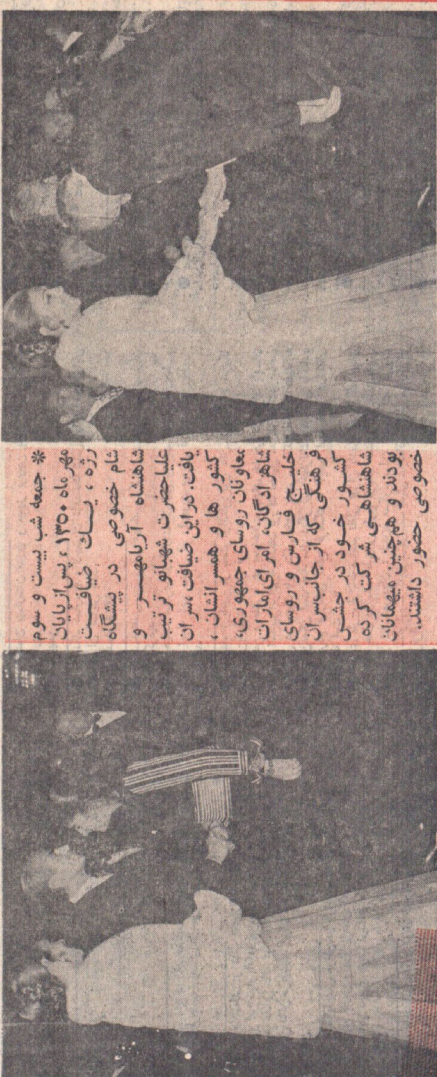 * جمعه شب بیست و سوم
مهرماه ۱۳۵۰ ، پس از پایان
رژه ، یــــك ضیافــــت
شام خصوصی در پیشگاه
شاهنشاه آریامهــــر و
علیاحضرت شهبانو ترتیب
یافت. در این ضیافت ،سران
کشور ها و همسرانشان ،
معاونان روسای جمهوری،
شاهزادگان، امرای امارات
خلیــج فــارس و روسای
فرهنگی که از جانب سران
کشــور خــود در جشــن
شاهنشاهــی شرکت کرده
بودند و هم چنین میهمانان
خصوصی حضور داشتند.